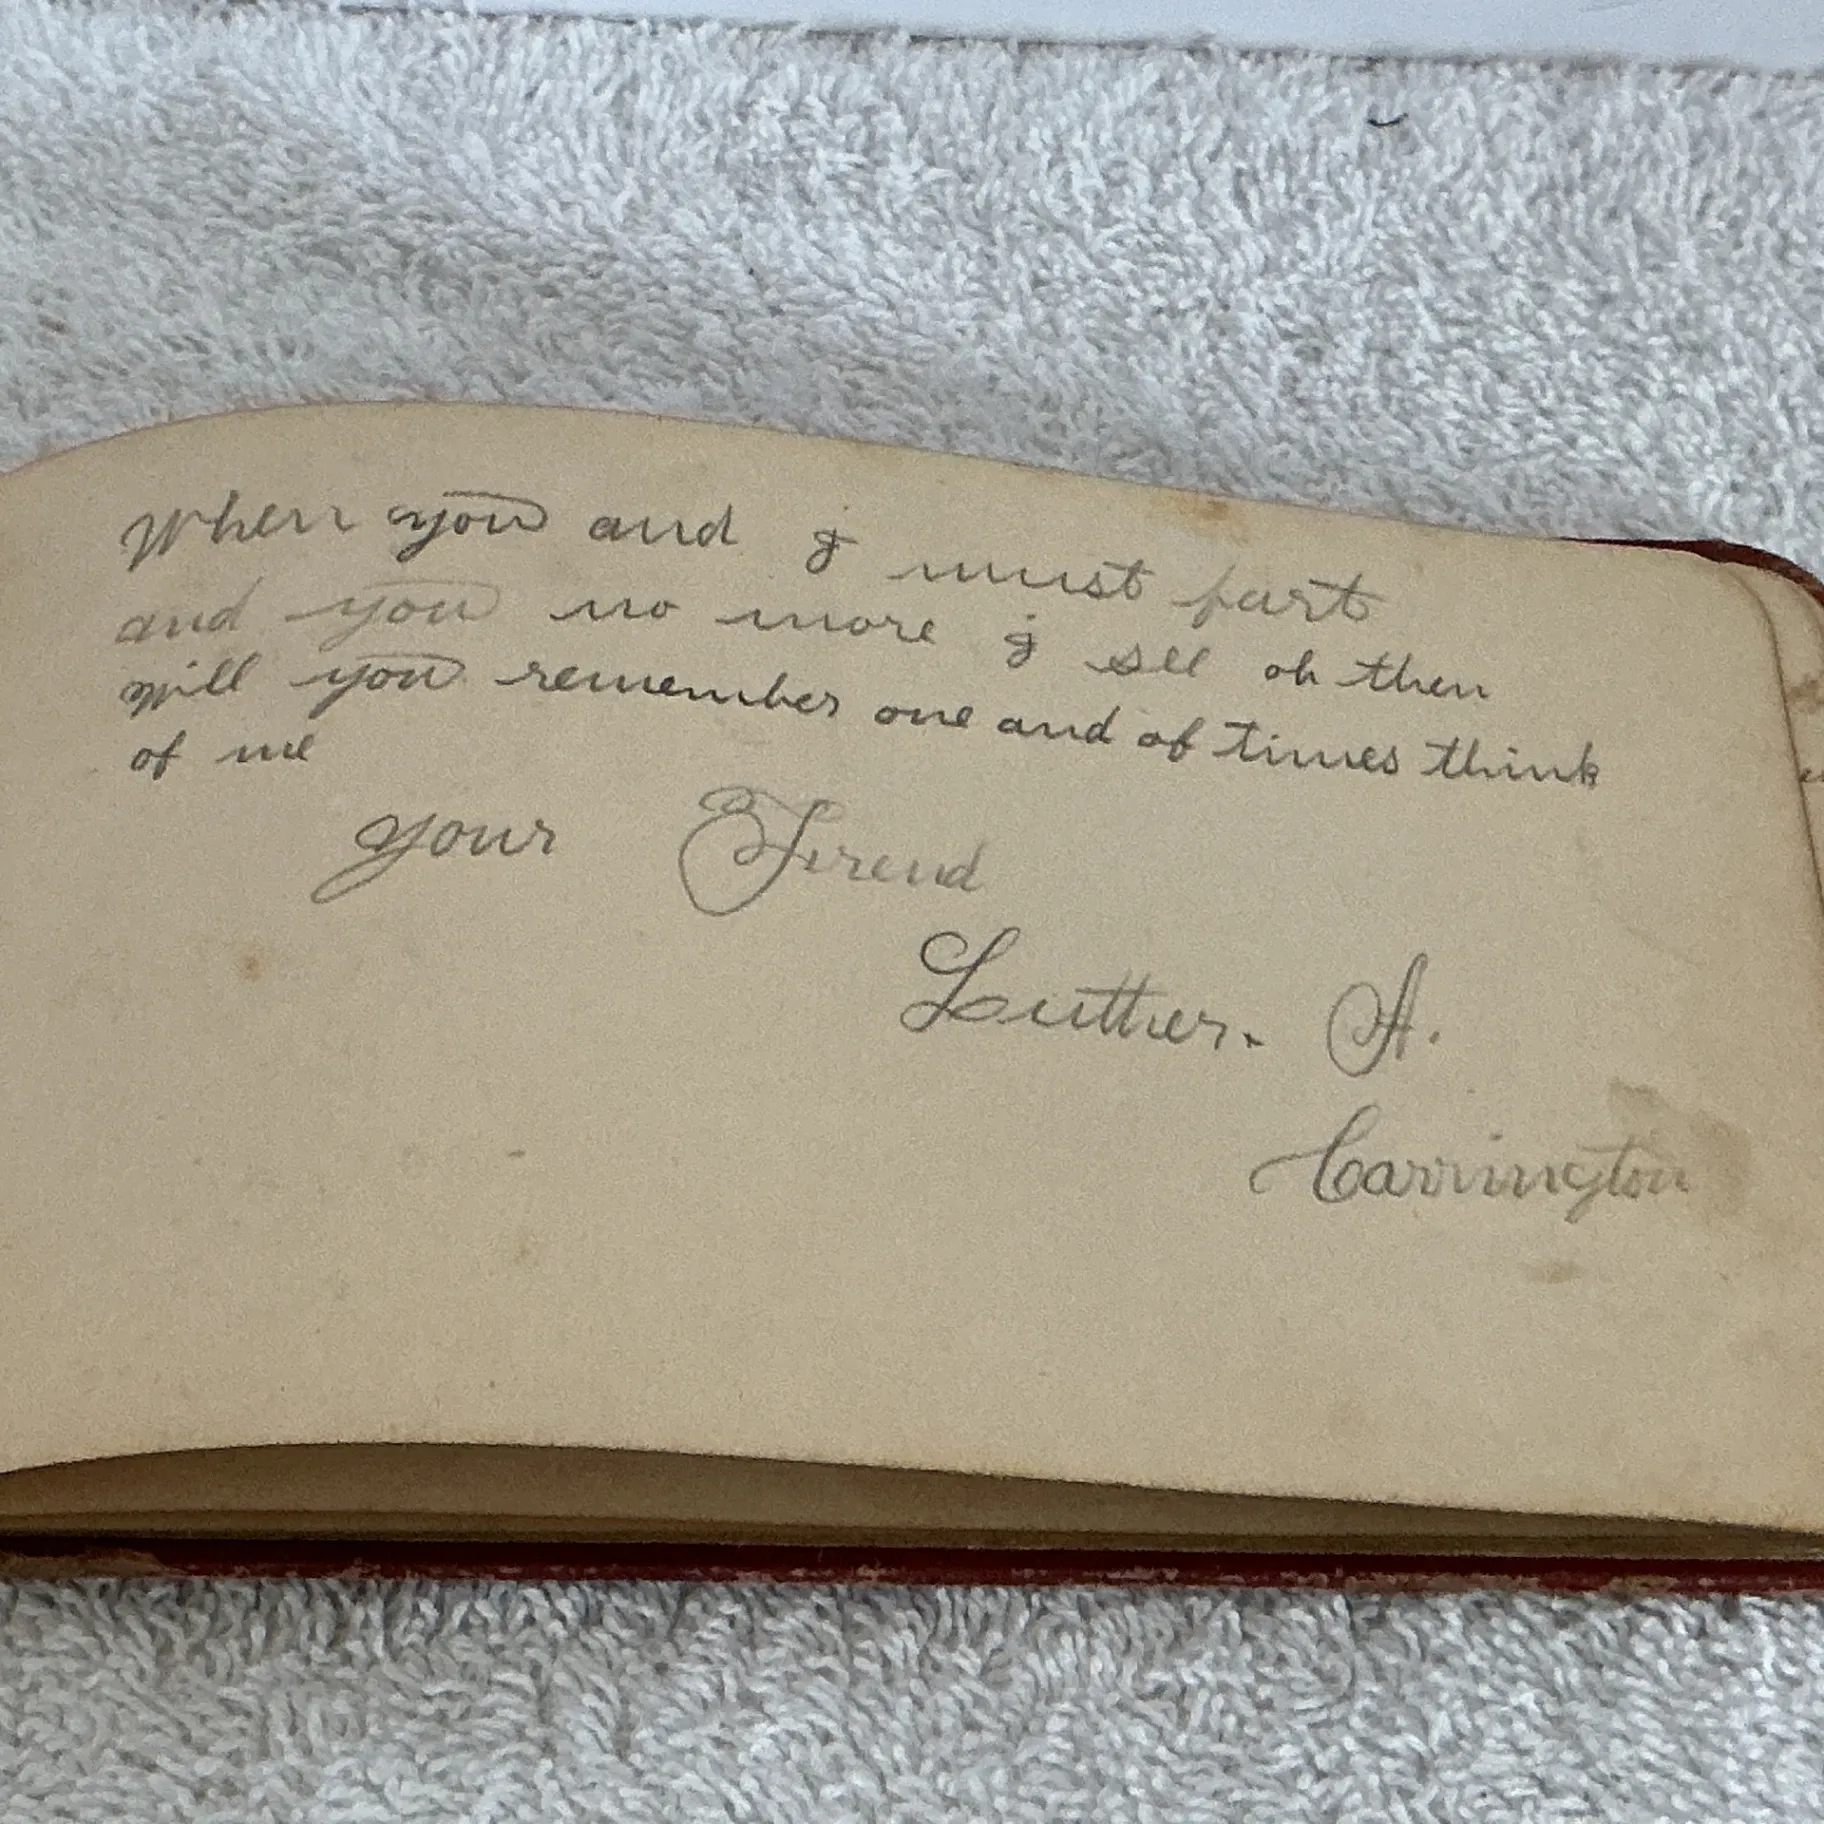 When you and i must part
and you no more i see oh then
will you remember one and of times think
of me
your Freind
Luther. A.
Carrington